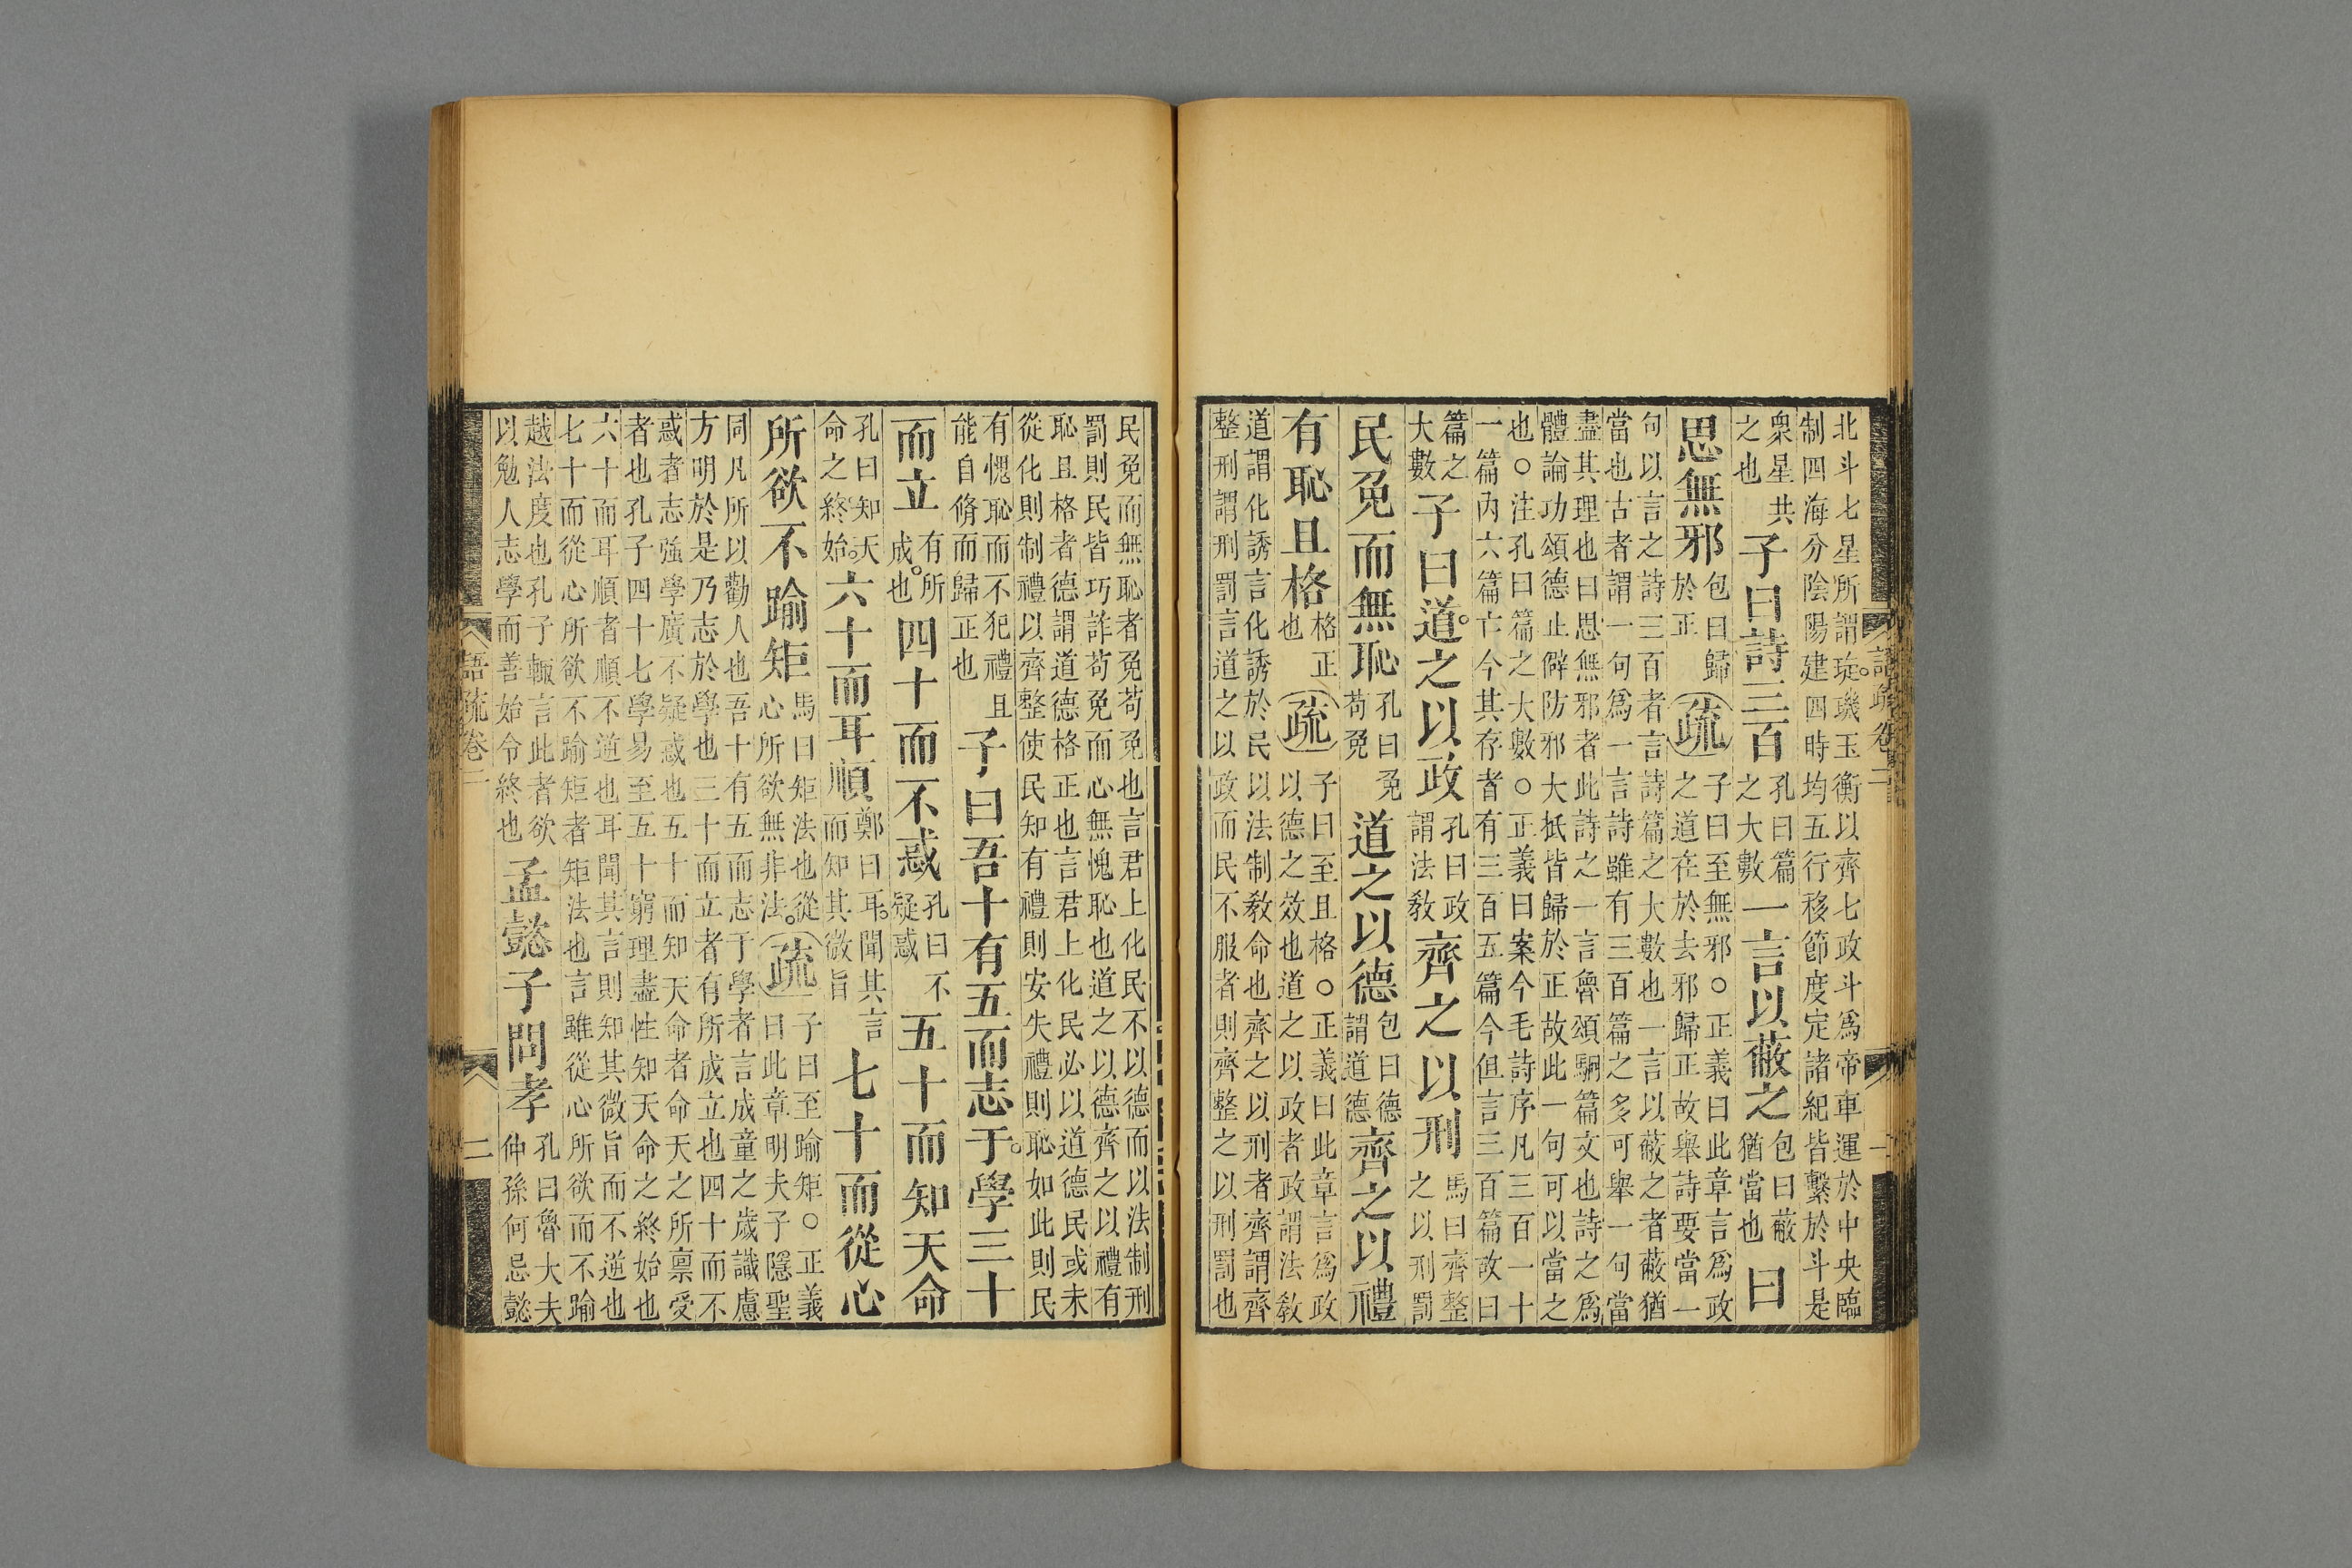 語疏卷二 二
北斗七星所謂琁璣玉衡以齊七政斗爲帝車運於中央臨
制四海分陰陽建四時均五行移節度定諸紀皆繫於斗是
衆星共之也子曰詩三百孔曰篇之大數一言以蔽之包曰蔽猶當也曰
思無邪包曰歸於正疏子曰至無邪○正義曰此章言爲政之道在於去邪歸正故舉詩要當一
句以言之詩三百者言詩篇之大數也一言以蔽之者蔽猶
當也古者謂一句爲一言詩雖有三百篇之多可舉一句當
盡其理也曰思無邪者此詩之一言魯頌駉篇文也詩之爲
體論功頌德止僻防邪大抵皆歸於正故此一句可以當之
也○注孔曰篇之大數○正義曰案今毛詩序凡三百一十
一篇內六篇亡今其存者有三百五篇今但言三百篇故曰
篇之大數子曰道之以政孔曰政謂法教齊之以刑馬曰齊整之以刑罰
民免而無恥孔曰免苟免道之以德包曰德謂道德齊之以禮
有恥且格格正也疏子曰至且格○正義曰此章言爲政以德之效也道之以政者政謂法教
道謂化誘言化誘於民以法制教命也齊之以刑者齊謂齊
整刑謂刑罰言道之以政而民不服者則齊整之以刑罰也
民免而無恥者免苟免也言君上化民不以德而以法制刑
罰則民皆巧詐苟免而心無愧恥也道之以德齊之以禮有
恥且格者德謂道德格正也言君上化民必以道德民或未
從化則制禮以齊整使民知有禮則安失禮則恥如此則民
有愧恥而不犯禮且能自脩而歸正也子曰吾十有五而志于學三十
而立有所成也四十而不惑孔曰不疑惑五十而知天命
孔曰知天命之終始六十而耳順鄭曰耳聞其言而知其微旨七十而從心
所欲不踰矩馬曰矩法也從心所欲無非法疏子曰至踰矩○正義曰此章明夫子隱聖
同凡所以勸人也吾十有五而志于學者言成童之歲識慮
方明於是乃志於學也三十而立者有所成立也四十而不
惑者志強學廣不疑惑也五十而知天命者命天之所稟受
者也孔子四十七學易至五十窮理盡性知天命之終始也
六十而耳順者順不逆也耳聞其言則知其微旨而不逆也
七十而從心所欲不踰矩者矩法也言雖從心所欲而不踰
越法度也孔子輒言此者欲以勉人志學而善始令終也孟懿子問孝孔曰魯大夫仲孫何忌懿
語疏卷二 二